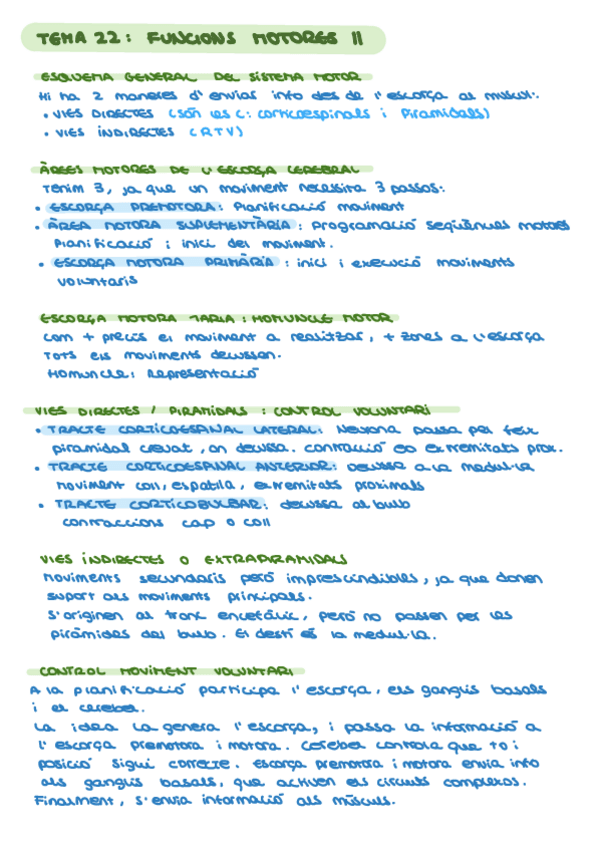 TEMA 22: FUNCIONS MOTORES II
ESQUEMA GENERAL DEL SISTEMA MOTOR
Hi ha 2 maneres d'enviar info des de l'escorça al múscul:
• VIES DIRECTES (són les c: corticoespinals i piramidals)
• VIES INDIRECTES (RTV)
ÀREES MOTORES DE L'ESCORÇA CEREBRAL
Tenim 3, ja que un moviment necessita 3 passos:
• ESCORÇA PREMOTORA: Planificació moviment
• ÀREA MOTORA SUPLEMENTÀRIA: Programació seqüències motores
Planificació i inici del moviment.
• ESCORÇA MOTORA PRIMÀRIA: inici i execució moviments
voluntaris
ESCORÇA MOTORA 1ARIA: HOMUNCLE MOTOR
Com + precís el moviment a realitzar, + zones a l'escorça
Tots els moviments decussen.
Homuncle: Representació
VIES DIRECTES / PIRAMIDALS: CONTROL VOLUNTARI
• TRACTE CORTICOESPINAL LATERAL: Neurona passa pel feix
piramidal creuat, on decussa. Contracció eo extremitats prox.
• TRACTE CORTICOESPINAL ANTERIOR: Decussa a la medul·la
moviment coll, espatlla, extremitats proximals
• TRACTE CORTICOBULBAR: decussa al bulb
contraccions cap o coll
VIES INDIRECTES O EXTRAPIRAMIDALS
Moviments secundaris però imprescindibles, ja que donen
suport als moviments principals.
S'originen al tronc encefàlic, però no passen per les
piràmides del bulb. El destí és la medul·la.
CONTROL MOVIMENT VOLUNTARI
A la planificació participa l'escorça, els ganglis basals
i el cerebel.
La idea la genera l'escorça, i passa la informació a
l'escorça premotora i motora. Cerebel controla que to i
posició sigui correcte. Escorça premotora i motora envia info
als ganglis basals, que activen els circuits complexos.
Finalment, s'envia informació als músculs.